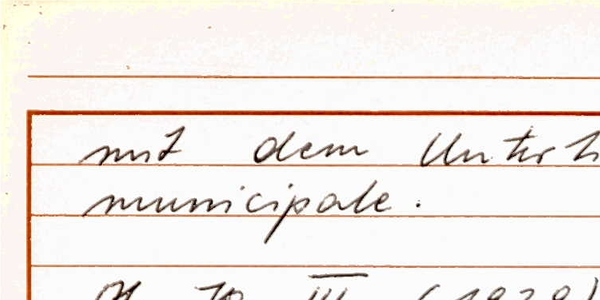 mit dem Unterh
municipale.
III (1929)